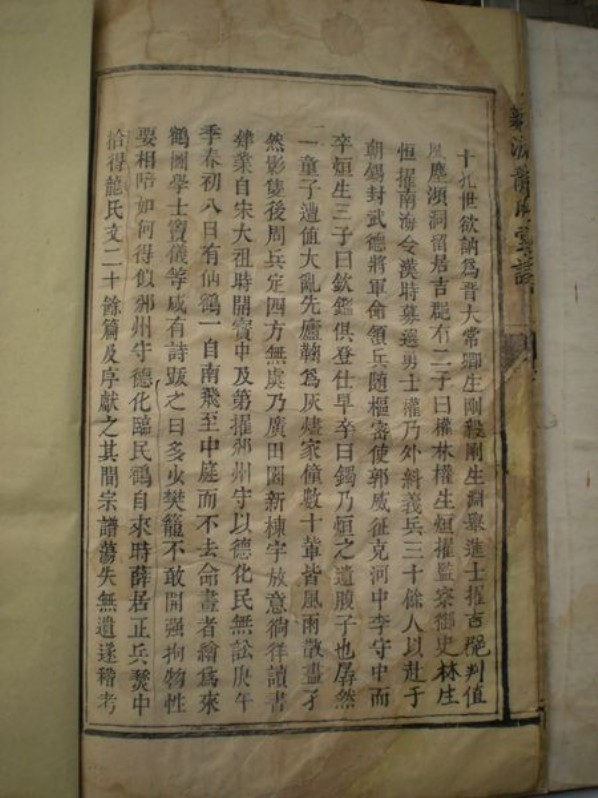 十九世欲訥為晋大常卿生剛毅剛生淵聚進士擢吉㲠判值
風塵澒洞留居吉㲠有二子曰權林權生烜擢監察御史林生
恒擢南海令漢時募選勇士權乃外糾義兵三十餘人以赴于
朝錫封武德將軍命領兵隨樞密使郭威征克河中李守中而
卒烜生三子曰欽鑑俱登仕早卒曰鐲乃烜之遺腹子也孱然
一童子遭值大亂先廬翰為灰燼家僮數十輩皆風雨散盡孑
然影隻後周兵定四方無虞乃廣田園新棟宇放意徜徉讀書
肄業自宋大祖時開寳中及第擢郴州守以德化民無訟庚午
季春初八日有仙鶴一自南飛至中庭而不去命畫者繪為來
鶴圖學士竇儀等咸有詩跋之曰多少樊籠不敢開强拘物性
要相陪如何得似郴州守德化臨民鶴自來時薛居正兵燹中
拾得龍氏文二十餘篇及序獻之其間宗譜蕩失無遺遂稽考